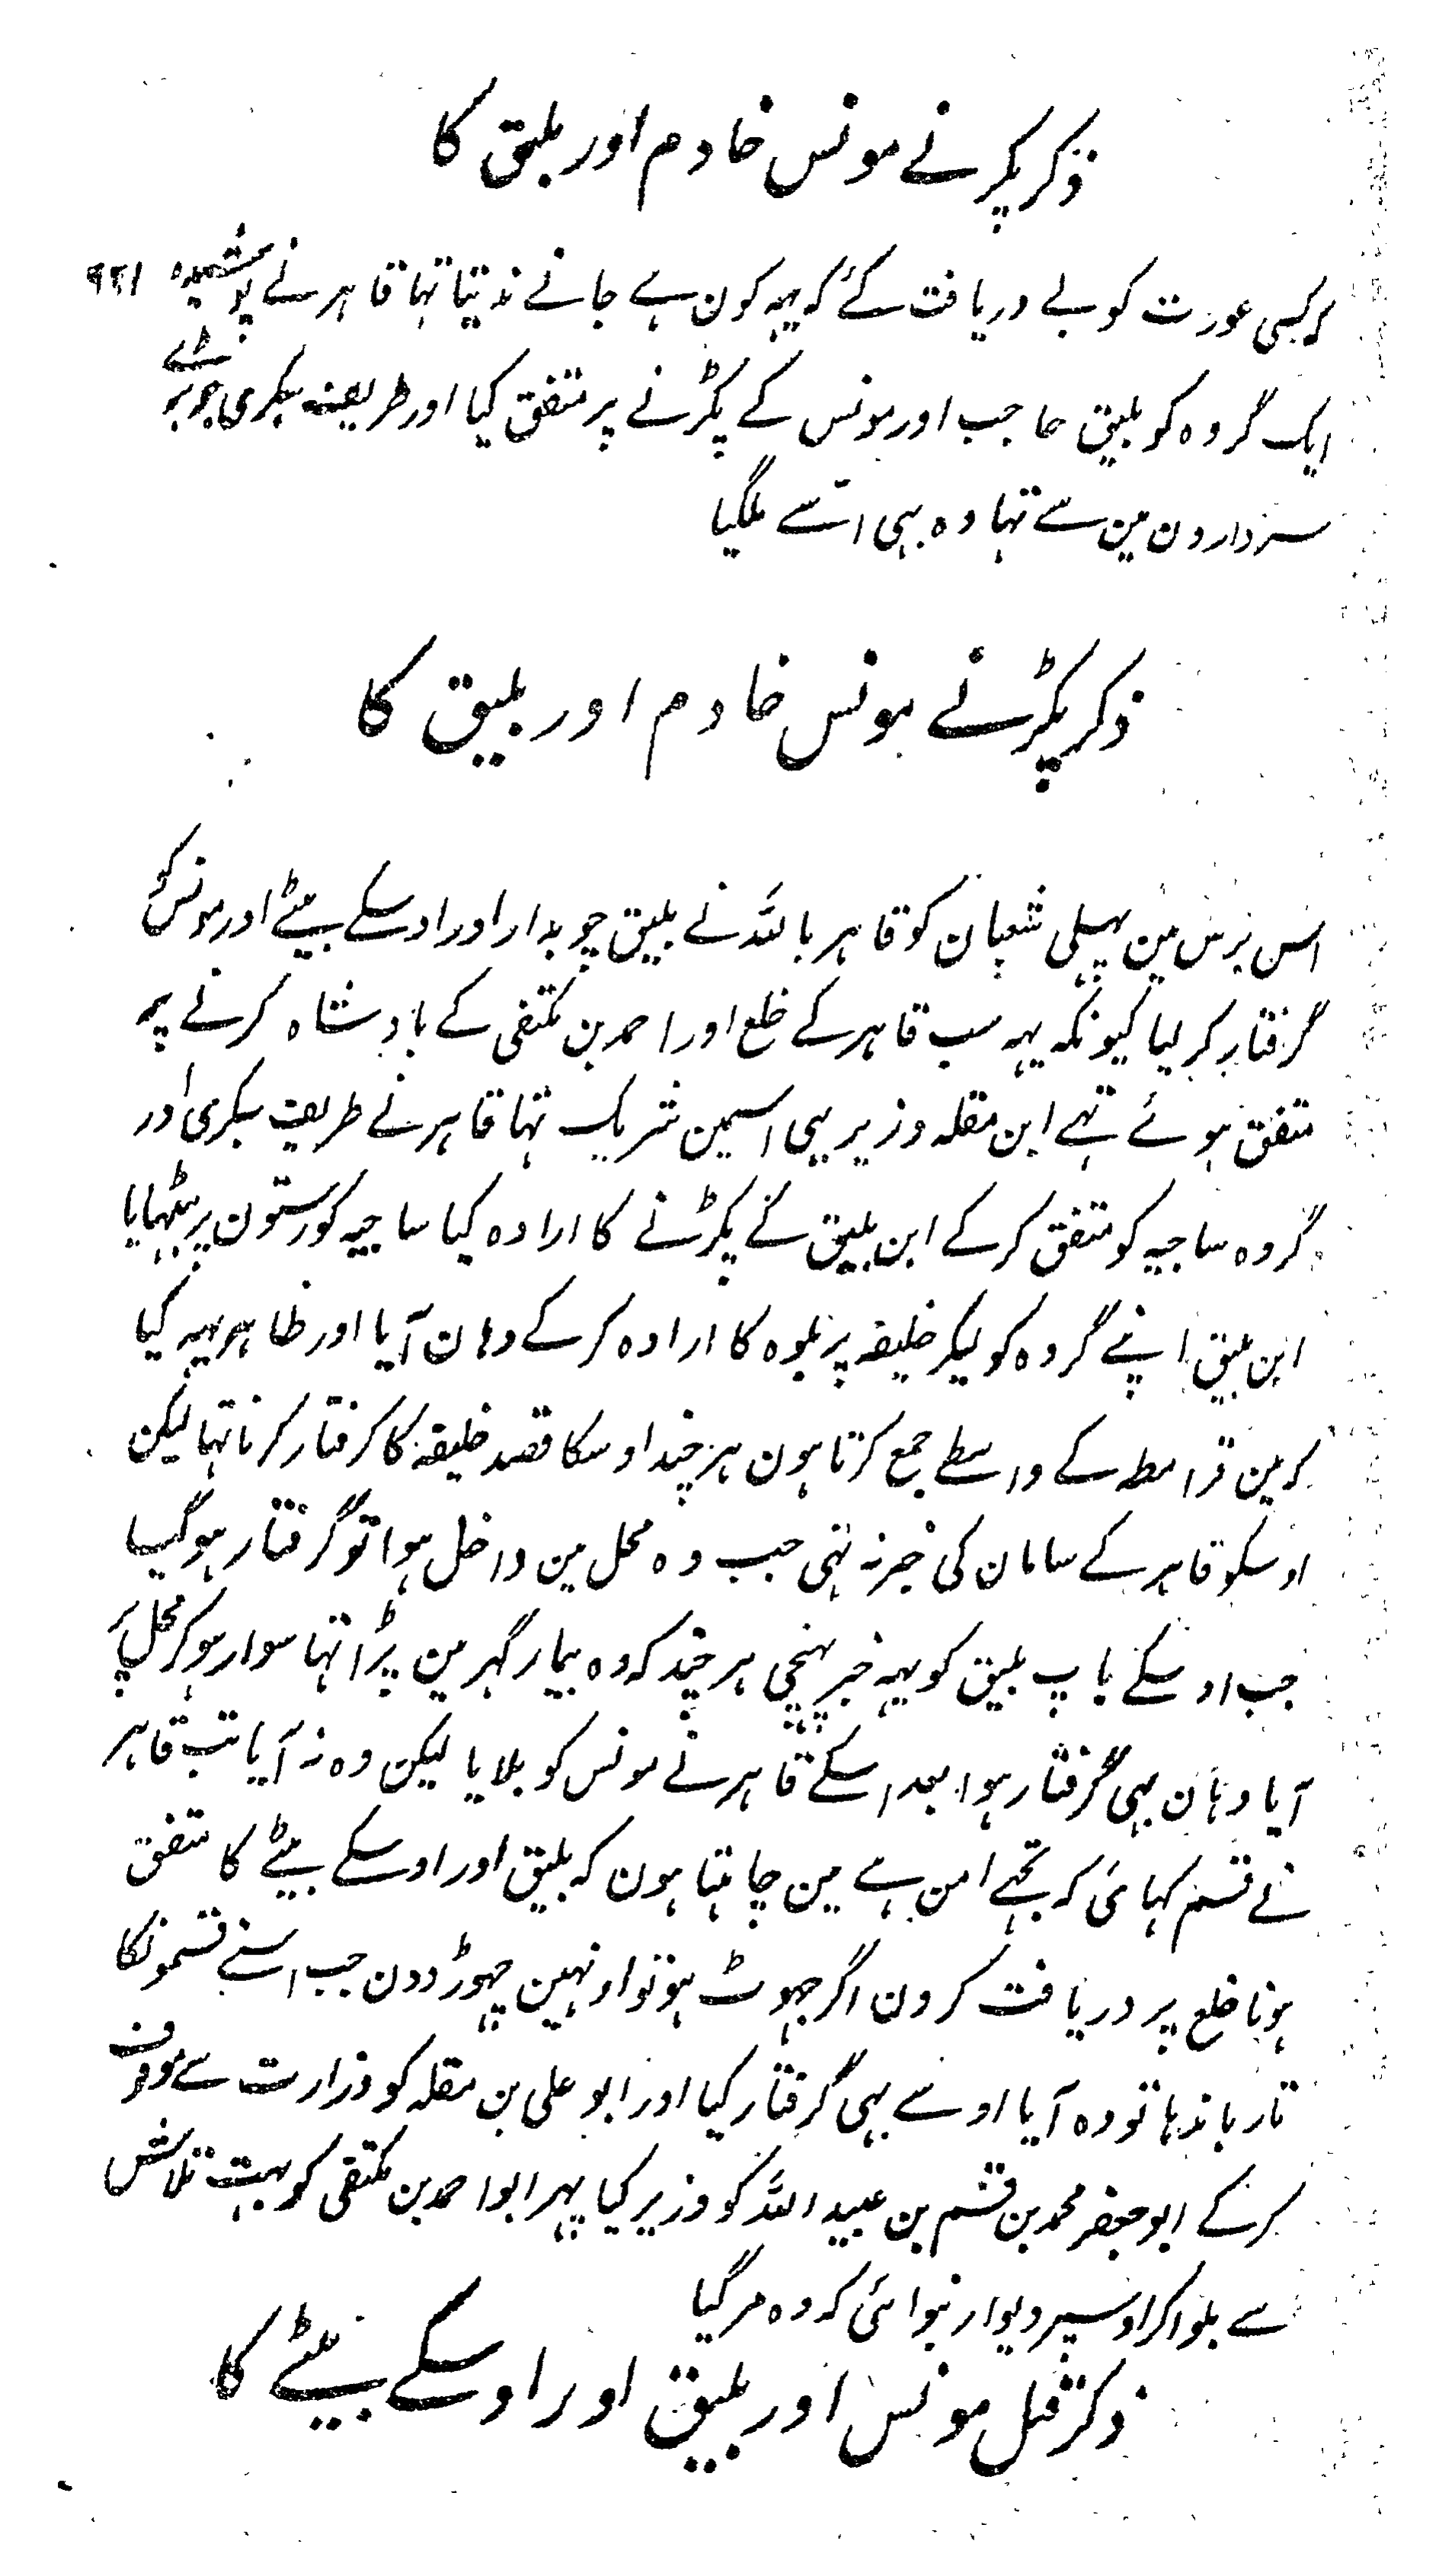 ذکر پکرنے مونس خادم اور بلیق کا
کہ کسی عورت کو بے دریافت کئے کہ یہہ کون ہے جانے ندیتا تہا قاہر نے پوشیدہ ۹۲۱
ایک گروہ کو بلیق حاجب اور مونس کے پکڑنے پر متفق کیا اور طریف سبکری جو بڑے
سردارون مین سے تہا وہ بہی اتسے ملگیا
ذکر پکڑنے مونس خادم اور بلیق کا
اس برس مین پہلی شعبان کو قاہر باللہ نے بلیق چوبدار اور اوسکے بیٹے اور مونس کو
گرفتار کر لیا کیونکہ یہہ سب قاہر کے خلع اور احمد بن مکتفی کے بادشاہ کرنے پر
متفق ہوئے تہے ابن مقلہ وزیر بہی اسمین شریک تہا قاہر نے طریف سبکری اور
گروہ ساجیہ کو متفق کر کے ابن بلیق کے پکڑنے کا ارادہ کیا ساجیہ کو رستون پر بٹہایا
ابن بلیق اپنے گروہ کو لیکر خلیفہ پر بلوہ کا ارادہ کر کے وہان آیا اور ظاہر یہہ کیا
کہ مین قرامطہ کے واسطے جمع کرتا ہون ہر چند اوسکا قصد خلیفہ کا گرفتار کرنا تہا لیکن
اوسکو قاہر کے سامان کی خبر نہ تہی جب وہ محل مین داخل ہوا تو گرفتار ہو گیا
جب اوسکے باپ بلیق کو یہہ خبر پہنچی ہر چند کہ وہ بیمار گہر مین پڑا تہا سوار ہو کر محل پر
آیا وہان بہی گرفتار ہوا بعد اسکے قاہر نے مونس کو بلایا لیکن وہ نہ آیا تب قاہر
نے قسم کہائی کہ تجہے امن ہے مین چاہتا ہون کہ بلیق اور اوسکے بیٹے کا متفق
ہونا خلع پر دریافت کرون اگر جہوٹ ہو تو اونہین چہوڑ دون جب اسنے قسمونکا
تار باندہا تو وہ آیا اوسے بہی گرفتار کیا اور ابو علی بن مقلہ کو وزارت سے موقوف
کر کے ابو جعفر محمد بن قسم بن عبید اللہ کو وزیر کیا پہر ابو احمد بن مکتفی کو بہت تلاش
سے بلوا کر اوسپر دیوار بنوائی کہ وہ مر گیا
ذکر قتل مونس اور بلیق اور اوسکے بیٹے کا